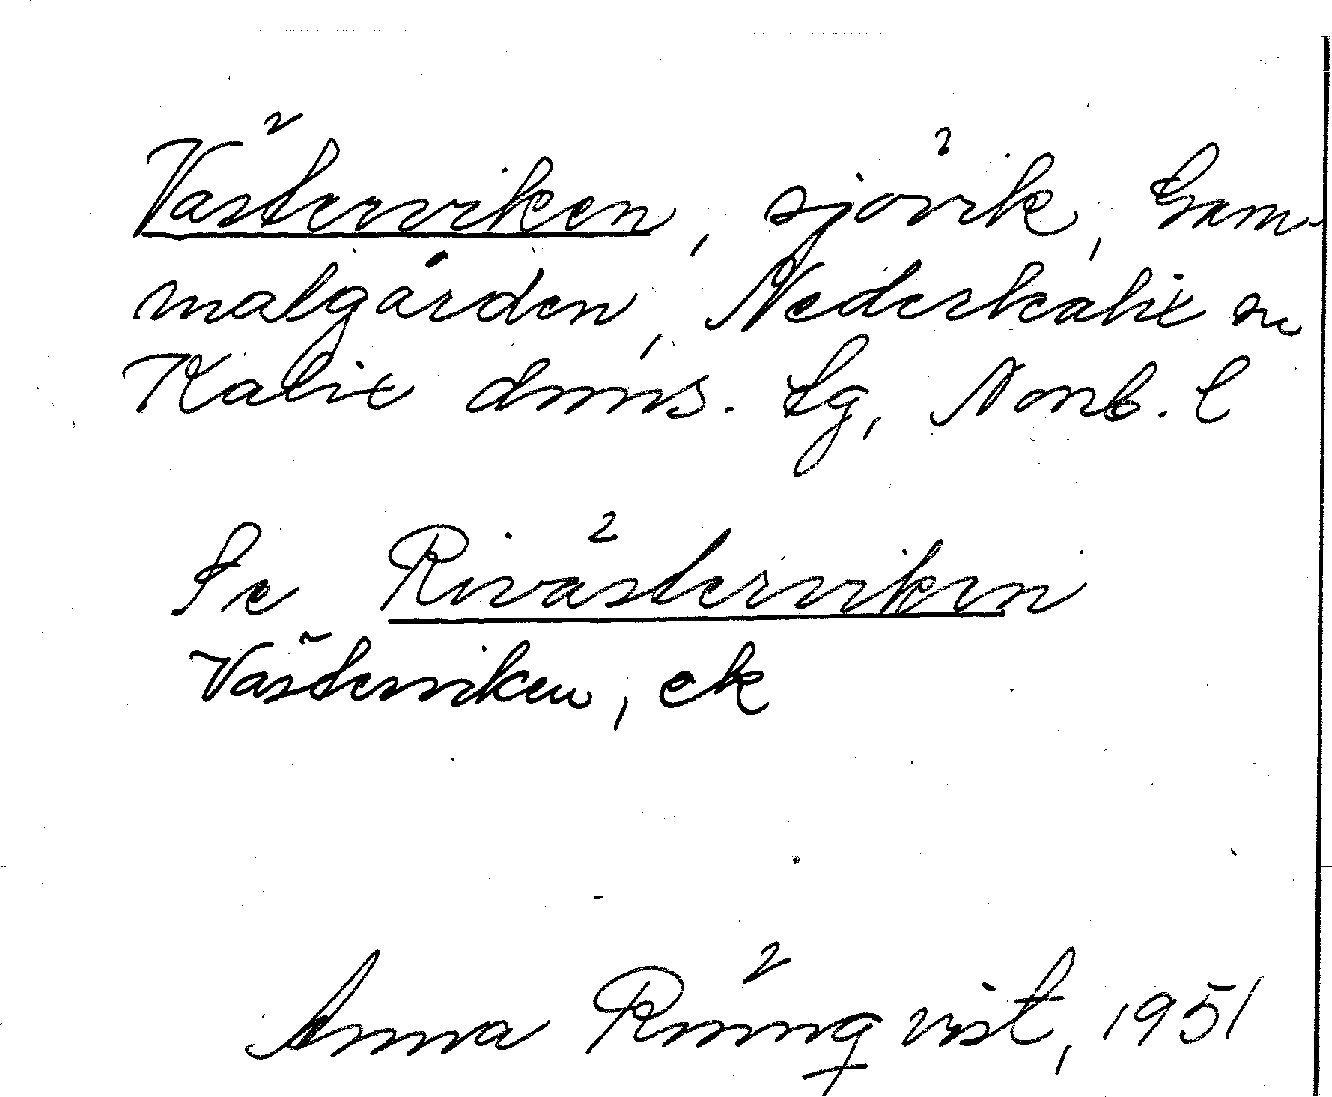 Västerviken, sjövik, Gam-
malgården, Nederkalix sn
Kalix dms. tg, Norrb. l
Se Rivästerviken
Västerviken, ek
Anna Rönnqvist, 1951